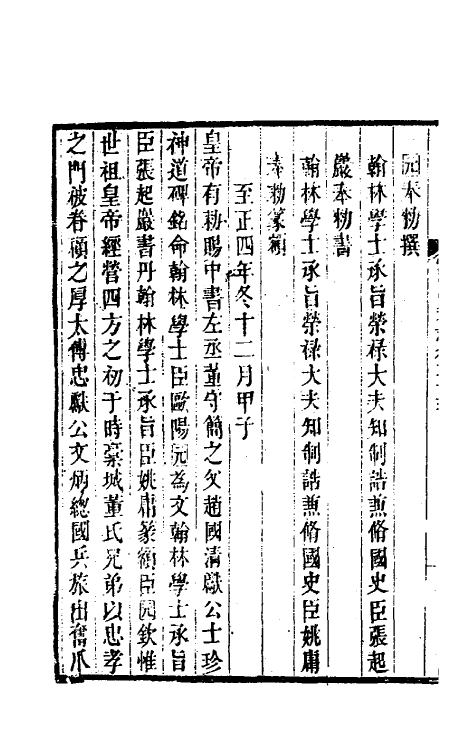 元奉勑撰
翰林學士承旨榮祿大夫知制誥兼脩國史臣張起
巖奉勑書
翰林學士承旨榮祿大夫知制誥兼脩國史臣姚庸
奉勑篆額
至正四年冬十二月甲子
皇帝有勑賜中書左丞董守簡之父趙國清獻公士珍
神道碑銘命翰林學士臣歐陽元為文翰林學士承旨
臣張起巖書丹翰林學士承旨臣姚庸篆額臣元欽惟
世祖皇帝經營四方之初于時槀城董氏兄弟以忠孝
之門被眷顧之厚太傅忠獻公文炳總國兵旅出奮爪